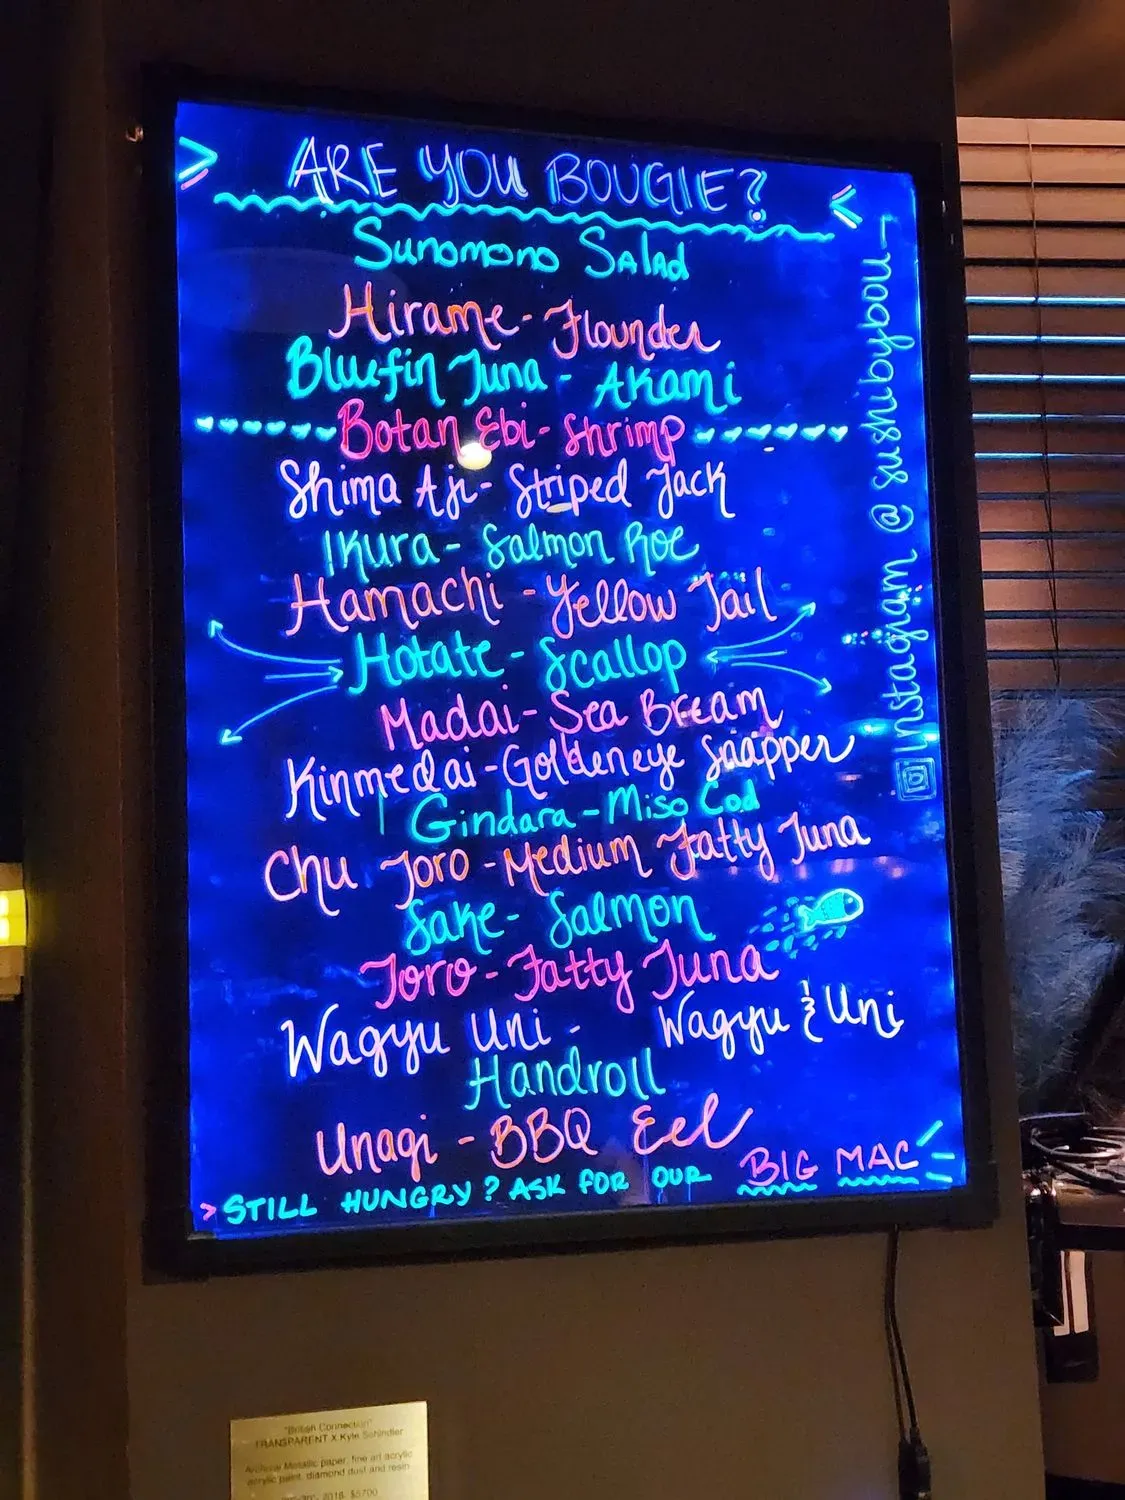 > ARE YOU BOUGIE? <
Sunomono Salad
Hirame - Flounder
Bluefin Tuna - Akami
Botan Ebi - Shrimp
Shima Aji - Striped Jack
Ikura - Salmon Roe
Hamachi - Yellow Tail
Hotate - Scallop
Madai - Sea Bream
Kinmedai - Goldeneye Snapper
Gindara - Miso Cod
Chu Toro - Medium Fatty Tuna
Sake - Salmon
Toro - Fatty Tuna
Wagyu Uni - Wagyu & Uni
Handroll
Unagi - BBQ Eel
> STILL HUNGRY? ASK FOR OUR BIG MAC
Instagram @ sushibybou
"British Connection"
TRANSPARENT X Kyle Schindler
Archival Metallic paper, fine art acrylic
acrylic paint, diamond dust and resin
2018 $5700